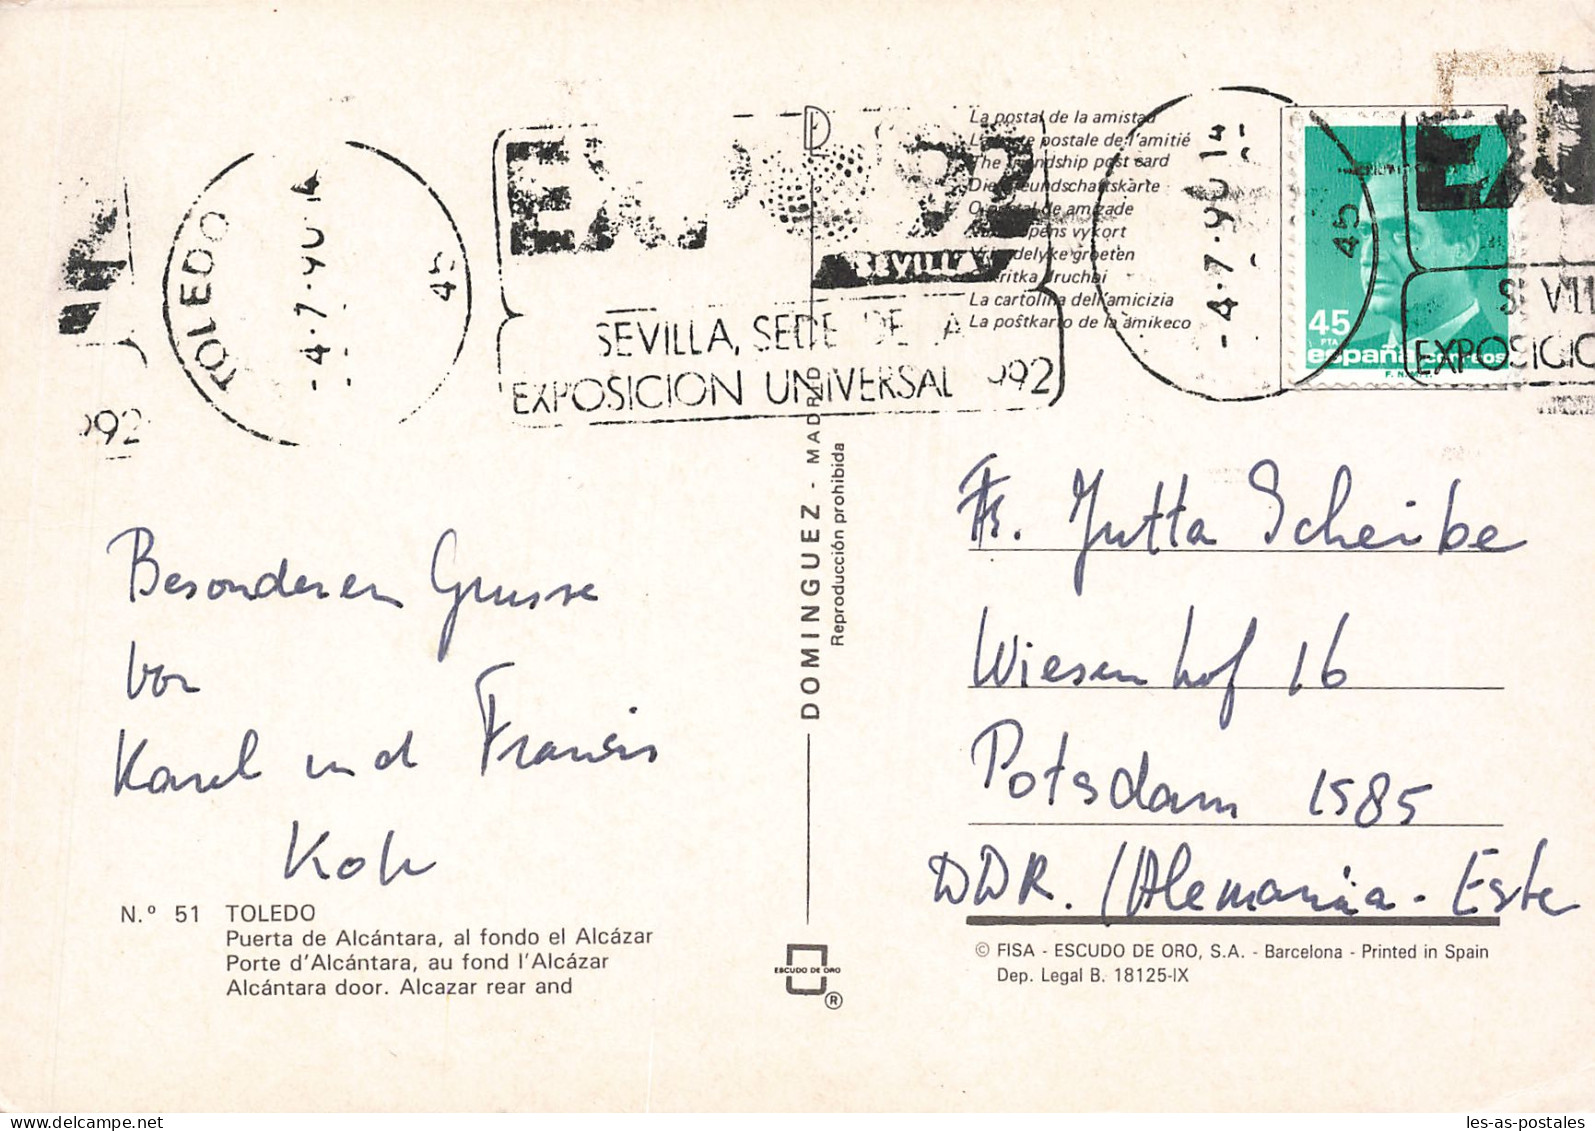 TOLEDO
-4.-7.-90.14
45
EXPO '92
SEVILLA
SEVILLA, SEDE DE LA
EXPOSICION UNIVERSAL 1992
992
La postal de la amistad
La carte postale de l'amitié
The friendship post card
Die Freundschaftskarte
O postal de amizade
pens vykort
delyke groeten
La cartolina dell'amicizia
La poŝtkarto de la amikeco
-4.-7.-90.14
45
45
PTA
españa correos
SEVILL
EXPOSICIO
Besonderen Grusse
von
Karel und Francis
Koh
Fr. Jutta Scheibe
Wiesenhof 16
Potsdam 1585
DDR. / Alemania - Este
DOMINGUEZ - MADRID
Reproducción prohibida
N.º 51 TOLEDO
Puerta de Alcántara, al fondo el Alcázar
Porte d'Alcántara, au fond l'Alcázar
Alcántara door. Alcazar rear and
ESCUDO DE ORO
®
© FISA - ESCUDO DE ORO, S.A. - Barcelona - Printed in Spain
Dep. Legal B. 18125-IX
les-as-postales